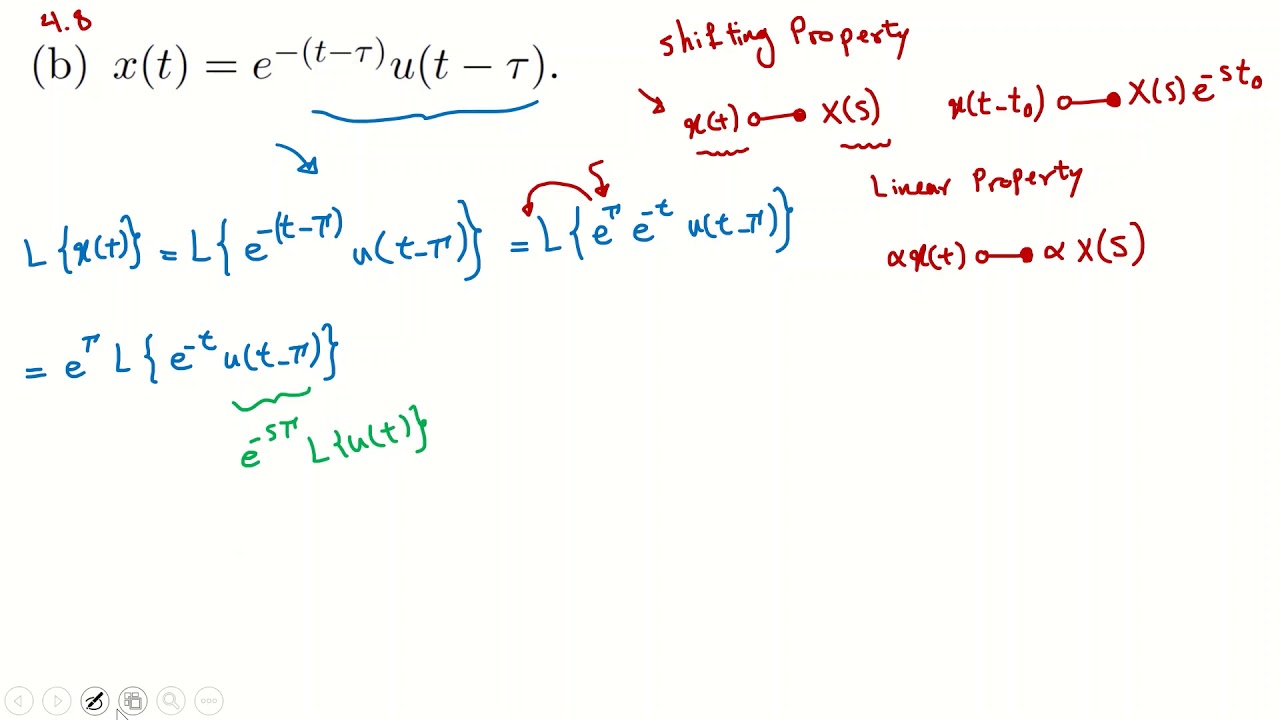 4.8
(b) x(t) = e^{-(t-τ)}u(t − τ).
Shifting Property
x(t) o—• X(s)   x(t-t₀) o—• X(s) e^{-st₀}
Linear Property
αx(t) o—• α X(s)
L{x(t)} = L{ e^{-(t-τ)} u(t-τ)} = L{ e^τ e^{-t} u(t-τ)}
= e^τ L{ e^{-t} u(t-τ)}
e^{-sτ} L{u(t)}